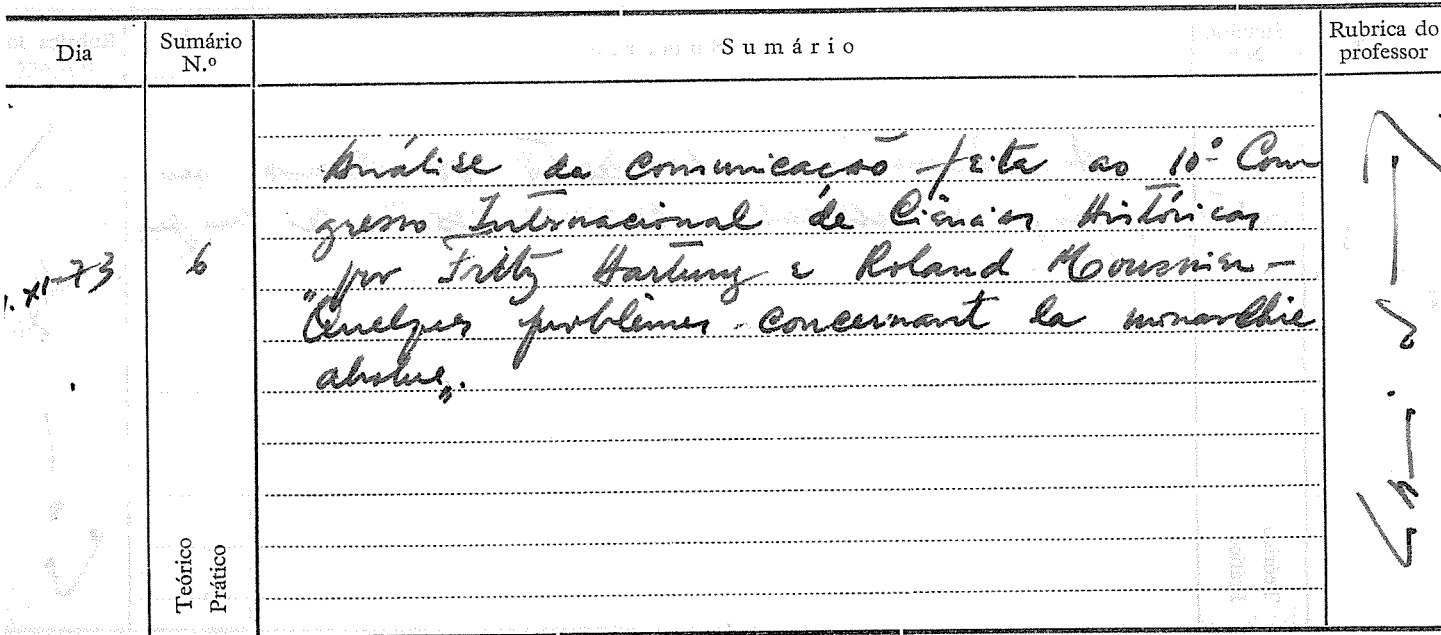 Dia Sumário N.º Sumário Rubrica do professor
Análise da comunicação feita ao 10º Con
gresso Internacional de Ciências Históricas
por Fritz Hartung e Roland Mousnier -
"Quelques problèmes concernant la monarchie
absolue".
XI-73 6
Teórico
Prático